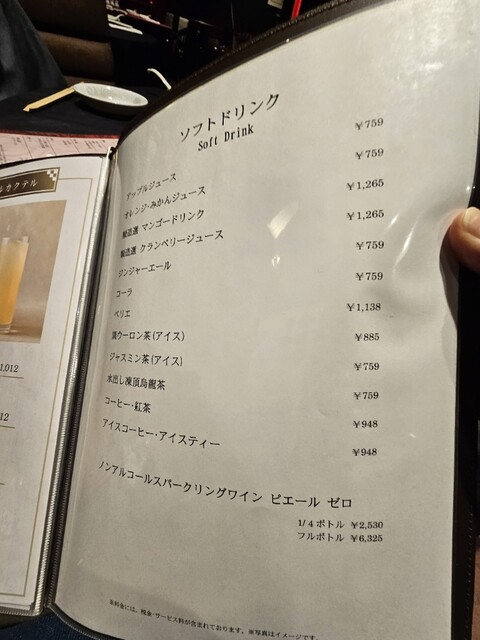 ルカクテル
1,012
12
ソフトドリンク
Soft Drink
アップルジュース ￥759
オレンジ・みかんジュース ￥759
マンゴードリンク ￥1,265
クランベリージュース ￥1,265
ジンジャーエール ￥759
コーラ ￥759
ペリエ ￥1,138
黒ウーロン茶(アイス) ￥885
ジャスミン茶(アイス) ￥759
水出し凍頂烏龍茶 ￥759
コーヒー・紅茶 ￥948
アイスコーヒー・アイスティー ￥948
ノンアルコールスパークリングワイン ピエール ゼロ
1/4ボトル ￥2,530
フルボトル ￥6,325
※料金には、税金・サービス料が含まれております。※写真はイメージです。